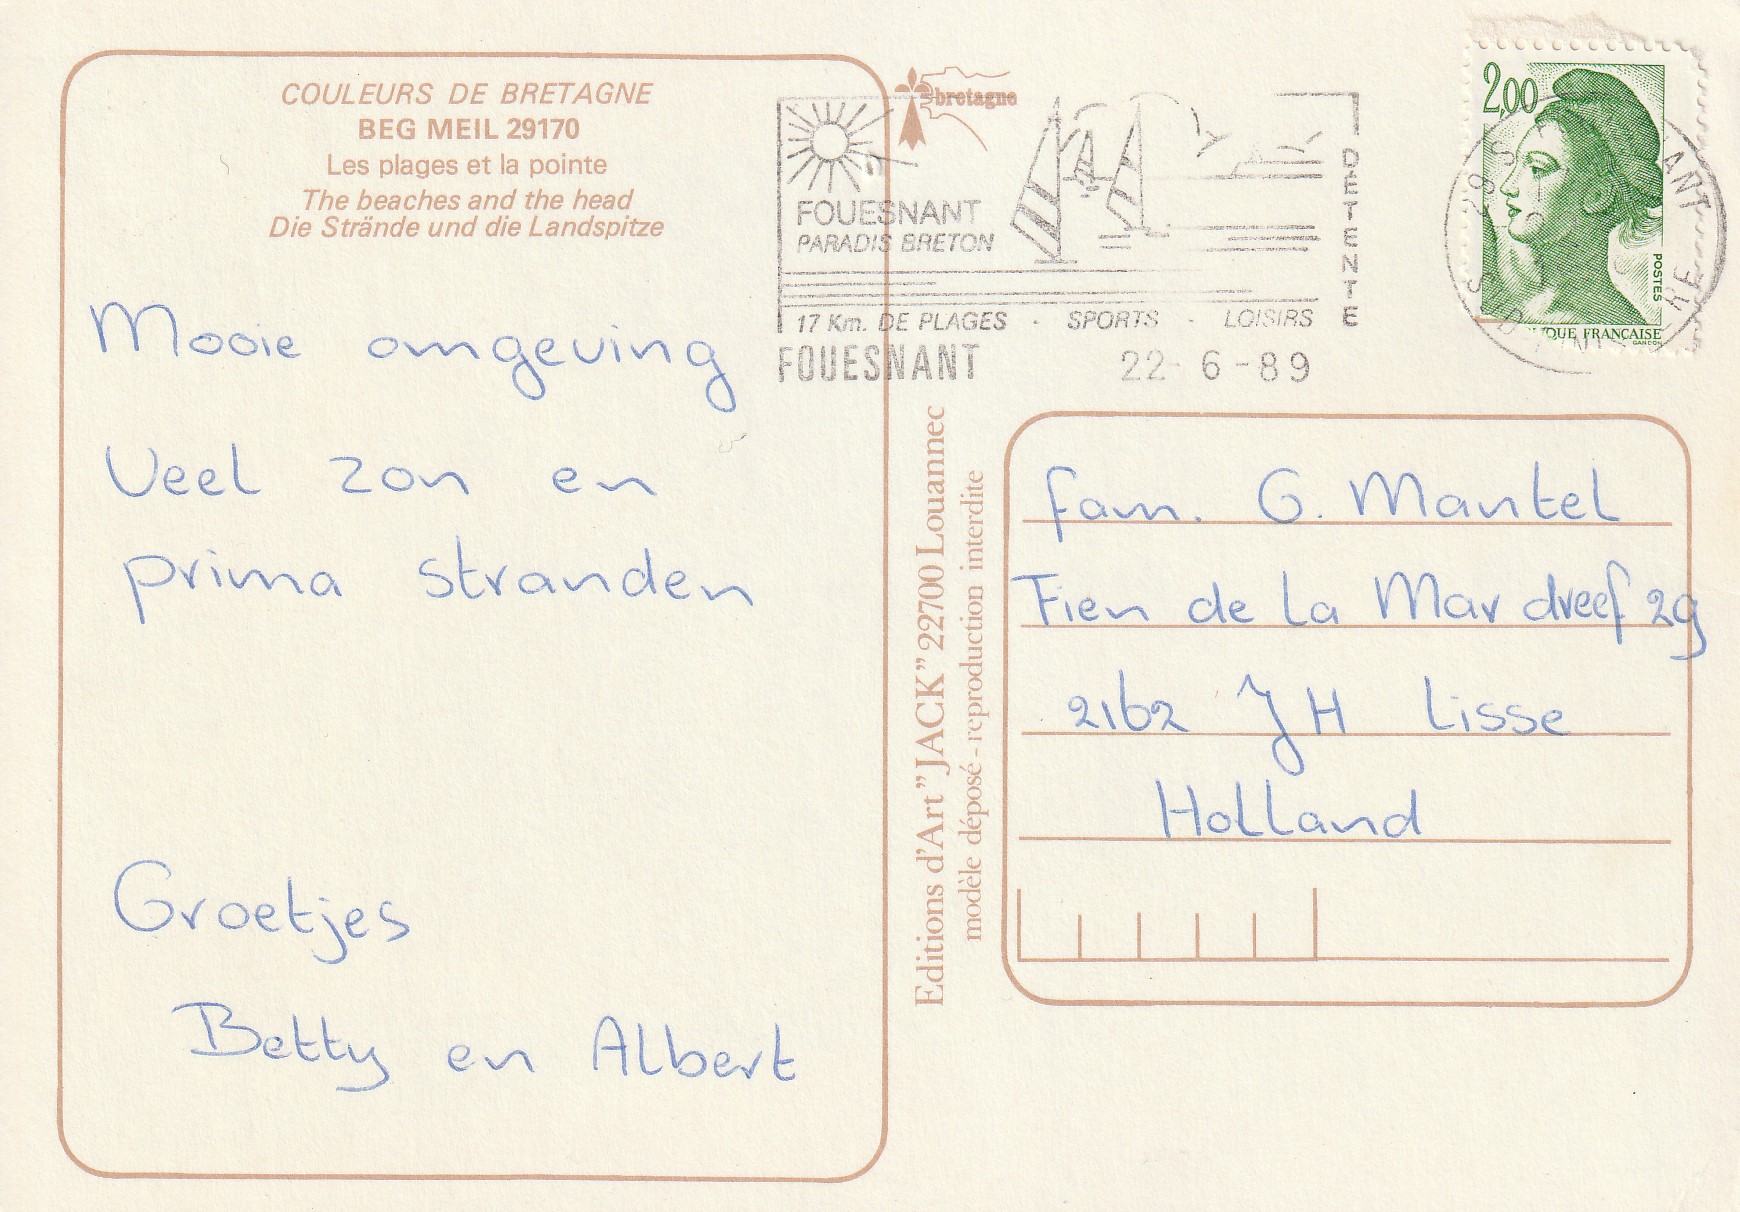 COULEURS DE BRETAGNE
BEG MEIL 29170
Les plages et la pointe
The beaches and the head
Die Strände und die Landspitze
Mooie omgeving
Veel zon en
prima stranden
Groetjes
Betty en Albert
bretagne
FOUESNANT
PARADIS BRETON
DETENTE
17 Km. DE PLAGES - SPORTS - LOISIRS
FOUESNANT 22-6-89
2,00
POSTES
QUE FRANÇAISE
GANDON
Editions d'Art "JACK" 22700 Louannec
modèle déposé - reproduction interdite
fam. G. Mantel
Fien de la Mar dreef 29
2162 JH Lisse
Holland